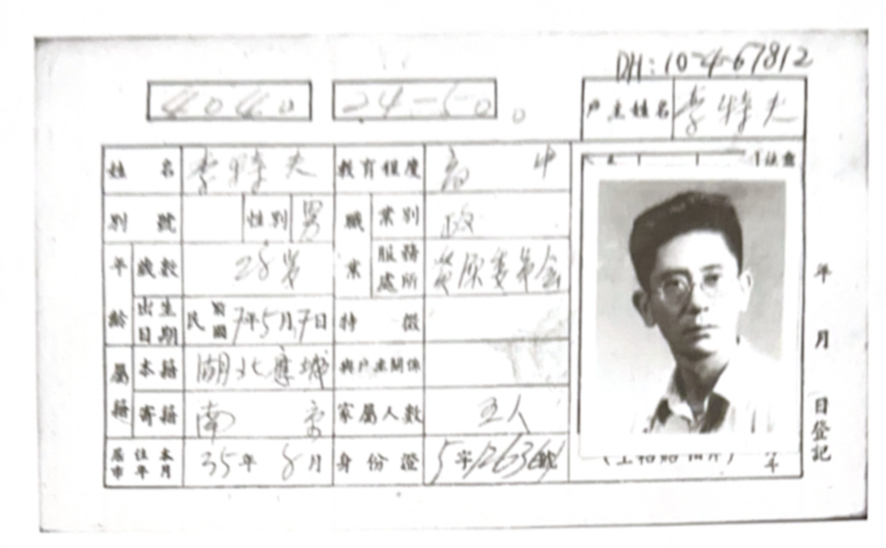 DH:10-4-67812
4040 24-50
戶主姓名 李特夫
姓名 李特夫 教育程度 高中
別號 性別 男 職業 業別 政
年齡 歲數 28歲 服務處所 資源委員會
出生日期 民國7年5月7日 特徵
屬籍 本籍 湖北應城 與戶主關係
寄籍 南京 家屬人數 五人
居住本市年月 35年8月 身份證
年月日登記